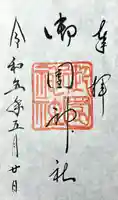 奉拝
御園神社
令和五年五月廿日